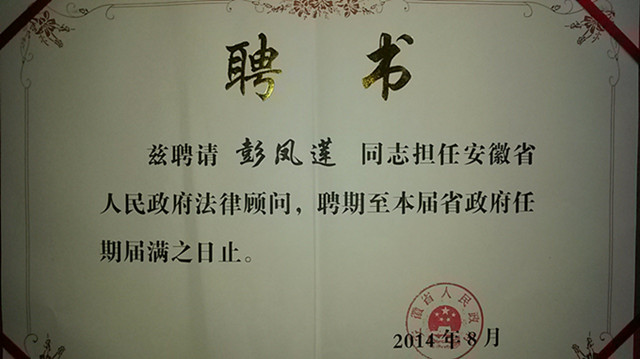 聘书
兹聘请 彭凤莲 同志担任安徽省
人民政府法律顾问，聘期至本届省政府任
期届满之日止。
安徽省人民政府
2014年8月